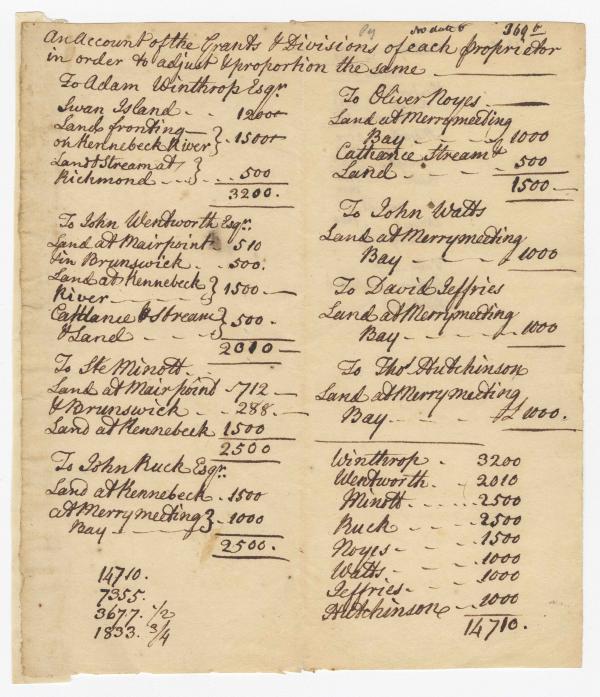 No date 369 b
An Account of the Grants & Divisions of each Proprietor
in order to adjust & proportion the same
To Adam Winthrop Esqr.
Swan Island - - 1200
Lands fronting
on Kennebeck River } - 1500
Land & Stream at
Richmond } - - - 500
3200.
To John Wentworth Esqr.
Land at Mairpoint 510
& in Brunswick - - 500.
Land at Kennebeck
River } 1500
Cathance & Stream
& Land } 500.
2010
To Ste Minott
Land at Mairpoint - 712
& Brunswick - - 288.
Land at Kennebeck 1500
2500
To John Ruck Esqr.
Land at Kennebeck - 1500
at Merrymeeting
Bay } - 1000
2500.
14710.
7355.
3677. 1/2
1833. 3/4
To Oliver Noyes
Land at Merrymeeting
Bay - - - 1000
Cathance Stream &
Land - - - 500
1500
To John Watts
Land at Merrymeeting
Bay - - - 1000
To David Jeffries
Land at Merrymeeting
Bay - - - 1000
To Tho: Hutchinson
Land at Merrymeeting
Bay - - - 1000.
Winthrop - 3200
Wentworth - 2010
Minott - - - 2500
Ruck - - - 2500
Noyes - - - 1500
Watts - - - 1000
Jeffries - - - 1000
Hutchinson - - 1000
14710.